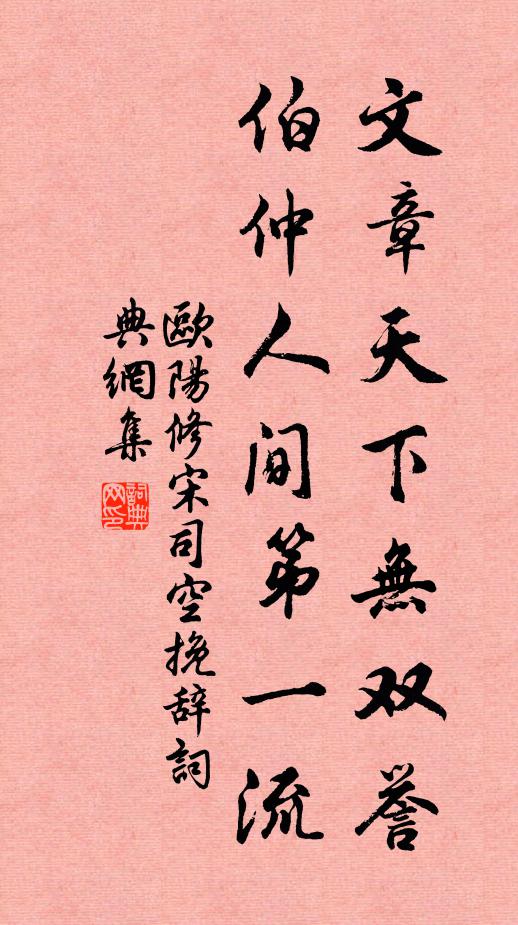 文章天下無双誉
伯仲人间第一流
歐陽修宋司空挽辞詞
典網集
詞典
网印